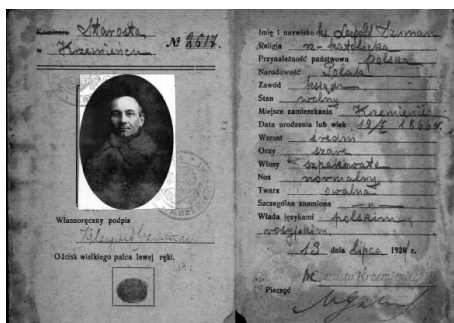 Komisarz Starosta
w Krzemieńcu № 2617.
Własnoręczny podpis
Odcisk wielkiego palca lewej ręki.
Imię i nazwisko ks. Leopold Szuman
Religja rz-katolicka
Przynależność państwowa polska
Narodowość Polak
Zawód ksiądz
Stan wolny
Miejsce zamieszkania Krzemieniec
Data urodzenia lub wiek
Wzrost średni
Oczy szare
Włosy szpakowate
Nos normalny
Twarz owalna
Szczególne znamiona
Włada językami polskim,
rosyjskim,
13 dnia lipca 1920 r.
Starosta Krzemieniecki
Pieczęć